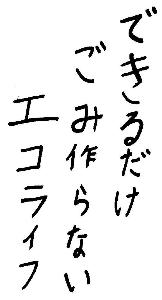 できるだけ
ごみ作らない
エコライフ